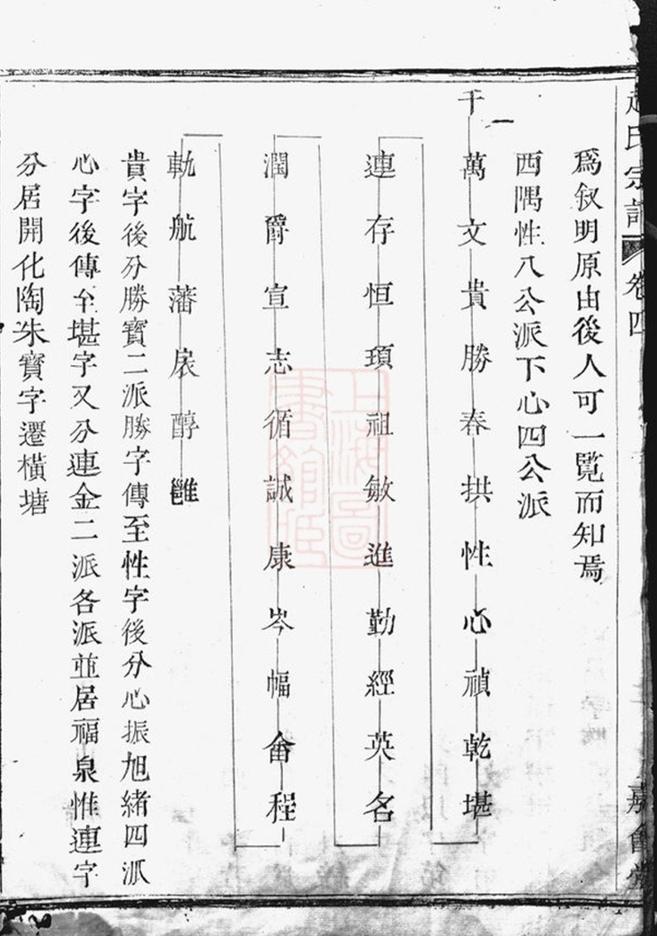 趙氏宗譜
卷四
嘉會堂
爲叙明原由後人可一覽而知焉
西隅性八公派下心四公派
千一
萬文貴勝春拱性心禎乾堪
連存恒頊祖敏進勤經英名
潤爵宣志循誠康岑幅畲程
軌航藩扆醇雝
貴字後分勝寶二派勝字傳至性字後分心振旭緒四派
心字後傳至堪字又分連金二派各派並居福泉惟連字
分居開化陶朱寶字遷橫塘
上海圖書館藏